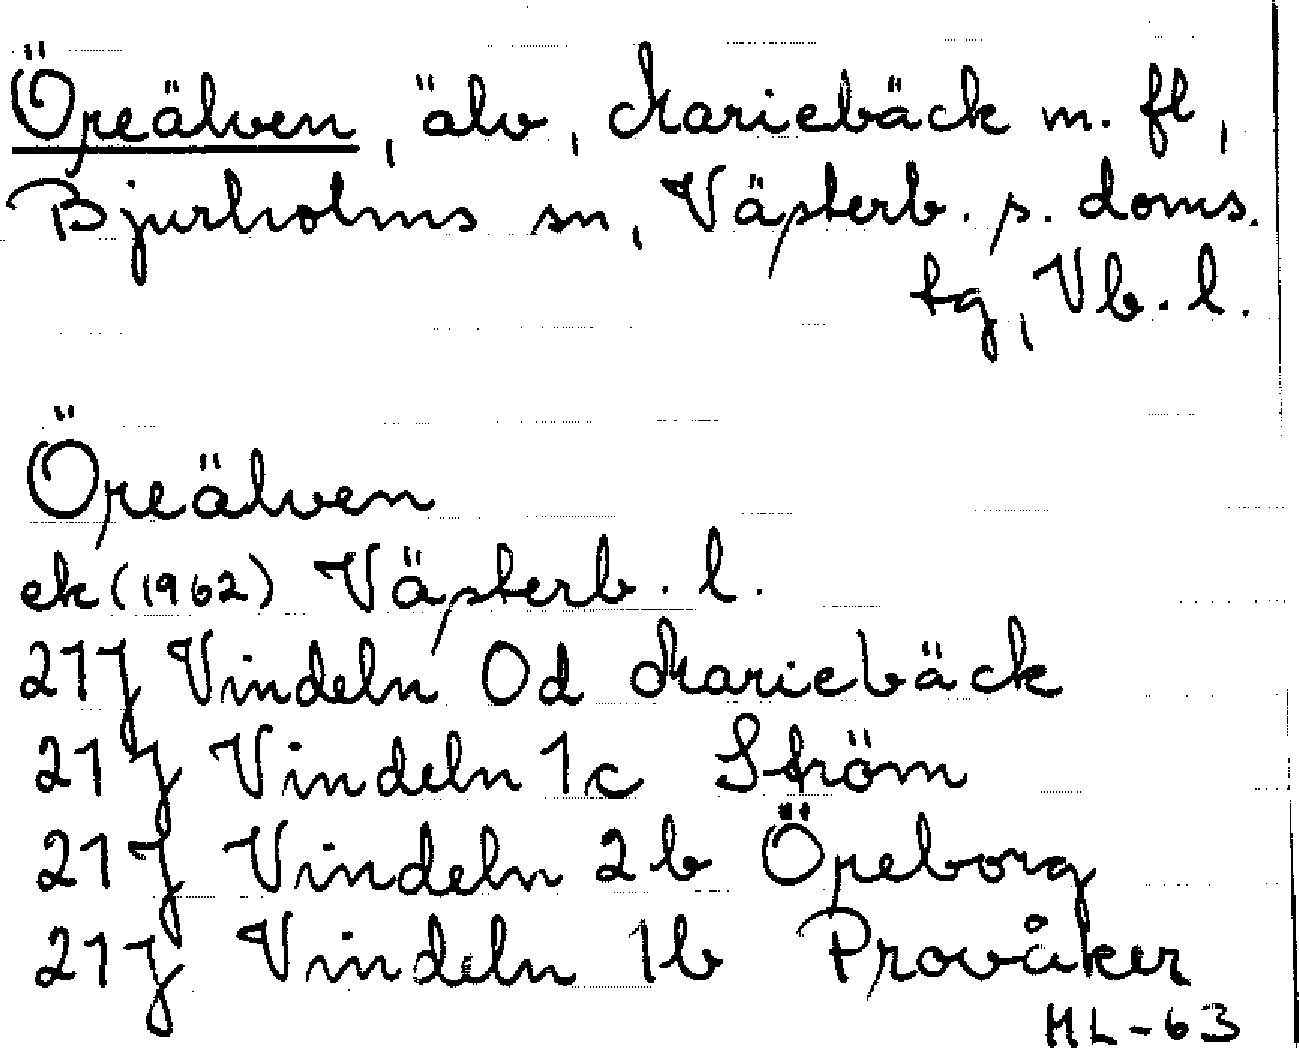 Öreälven, älv, Mariebäck m. fl,
Bjurholms sn, Västerb. s. doms.
tg, Vb. l.
Öreälven
ek (1962) Västerb. l.
21J Vindeln 0d Mariebäck
21J Vindeln 1c Ström
21J Vindeln 2b Öreborg
21J Vindeln 1b Provåker
ML-63